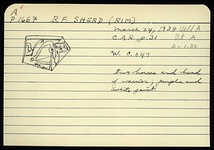 A
P 1664 R.F. SHERD (RIM)
March 24, 1938
C.A.R. p. 31
W. 0.047
two horses and head
of warrior, purple and
white paint.